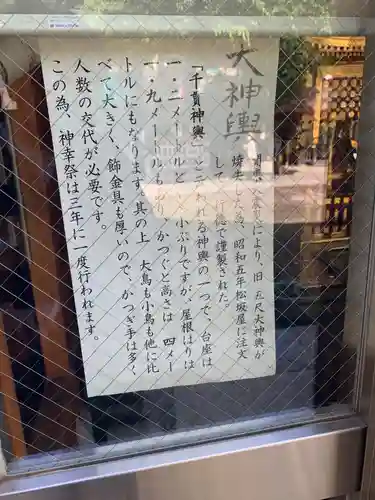 大神輿
関東大震災により、旧五尺大神輿が
焼失した為、昭和五年松坂屋に注文
して行徳で謹製された。
「千貫神輿」と云われる神輿の一つで、台座は
一・二メートルと小ぶりですが、屋根はりは
一・九メートルもあり、かつぐと高さは四メー
トルにもなります。其の上、大鳥も小鳥も他に比
べて大きく、飾金具も厚いので、かつぎ手は多く
人数の交代が必要です。
この為、神幸祭は三年に一度行われます。